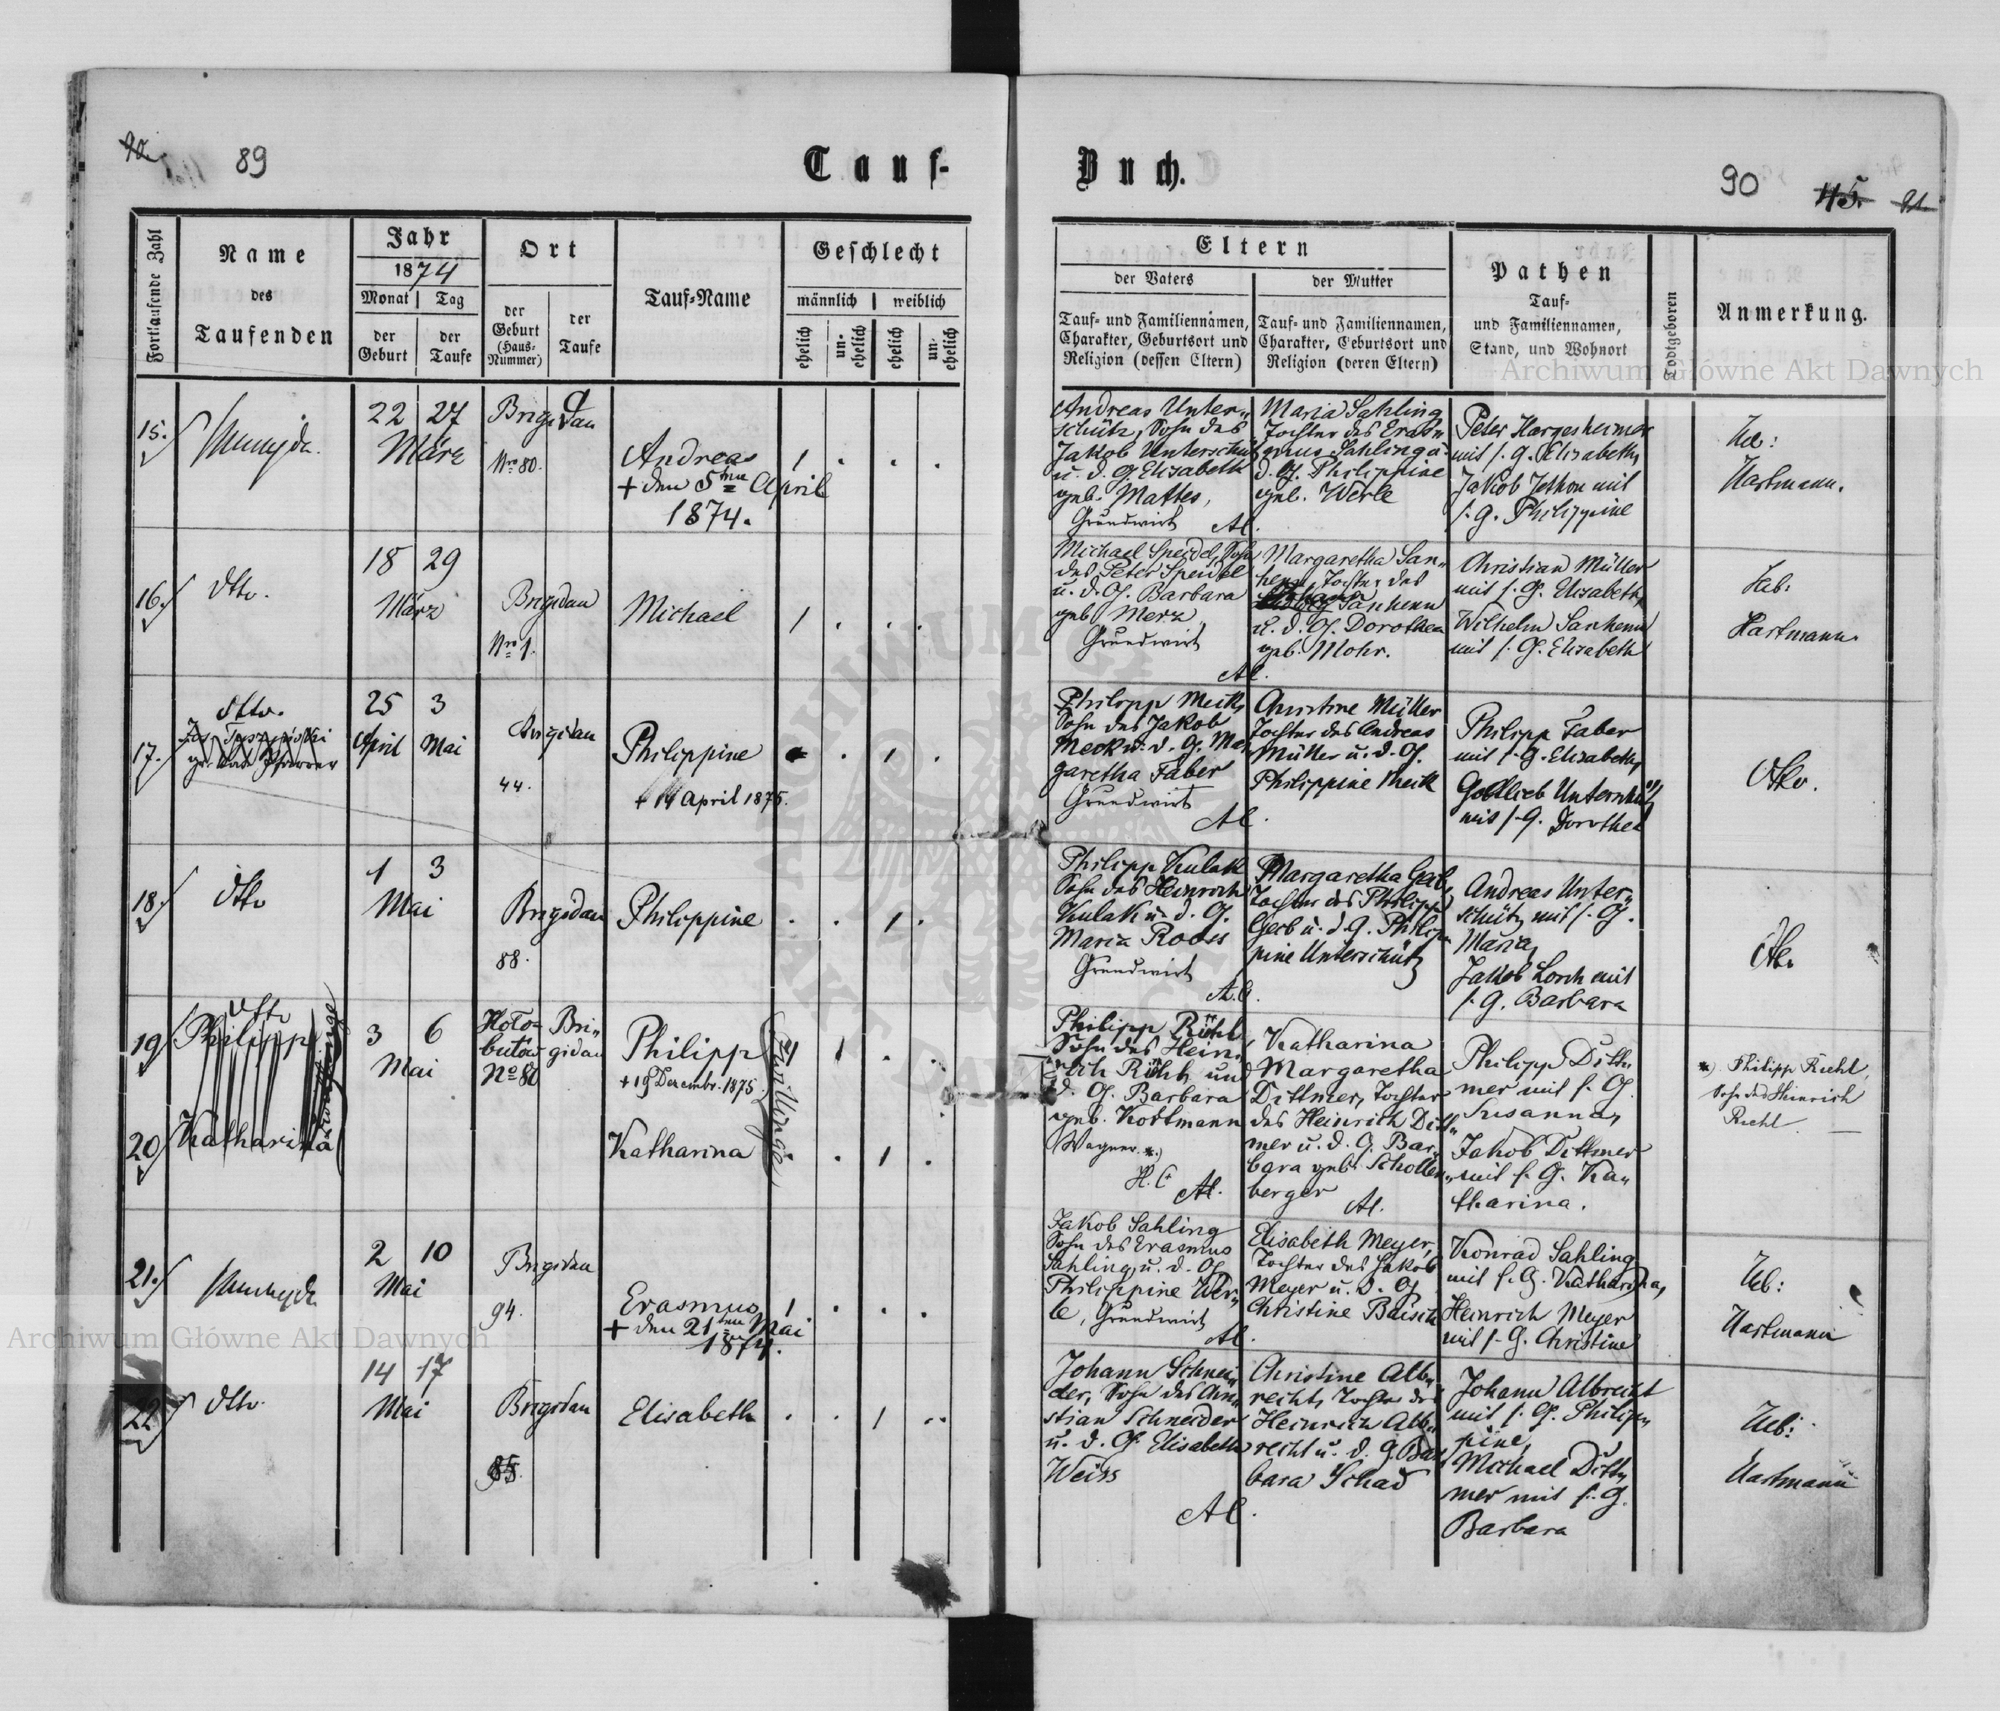 89
Tauf-
Buch.
90
45.
91
Fortlaufende Zahl
Name
des
Taufenden
Jahr
1874
Monat
Tag
der
Geburt
der
Taufe
Ort
der
Geburt
(Haus-
Nummer)
der
Taufe
Tauf-Name
Geschlecht
männlich
weiblich
ehelich
un-
ehelich
ehelich
un-
ehelich
Eltern
der Vaters
der Mutter
Tauf- und Familiennamen,
Charakter, Geburtsort und
Religion (dessen Eltern)
Tauf- und Familiennamen,
Charakter, Geburtsort und
Religion (deren Eltern)
Pathen
Tauf-
und Familiennamen,
Stand, und Wohnort
Todtgeboren
Anmerkung.
Archiwum Główne Akt Dawnych
15.
22 27
März
Brigidau
Nro 80.
Andreas
+ den 5ten April
1874.
1 . . .
Andreas Unter„
schütz, Sohn des
Jakob Unterschütz
u. d. G. Elisabeth
geb. Mattes,
Grundwirt
Al.
Maria Sahling
Tochter des Eras„
mus Sahling u.
d. G. Philippine
geb. Werle
Peter Hargesheimer
mit s. G. Elisabeth,
Jakob Jethon mit
s. G. Philippine
Heb:
Hartmann.
16.
dtto.
18 29
März
Brigidau
Nro 1.
Michael
1 . . .
Michael Speidel, Sohn
des Peter Speidel
u. d. G. Barbara
geb. Merz
Grundwirt
Al.
Margaretha San„
henn, Tochter des
Johann
Sanhenn
u. d. G. Dorothea
geb. Mohr.
Christian Müller
mit s. G. Elisabeth,
Wilhelm Sanhenn
mit s. G. Elisabeth
Heb:
Hartmann.
17.
dtto.
25 3
April Mai
Brigidau
44.
Philippine
+ 14 April 1875.
. . 1 .
Philipp Meck,
Sohn des Jakob
Meck u. d. G. Mar„
garetha Faber
Grundwirt
Al.
Christine Müller
Tochter des Andreas
Müller u. d. G.
Philippine Meck
Philipp Faber
mit s. G. Elisabeth,
Gottlieb Unterschütz
mit s. G. Dorothea
dtto.
18.
dtto
1 3
Mai
Brigidau
88.
Philippine
. . 1 .
Philipp Kulak
Sohn des Heinrich
Kulak u. d. G.
Maria Rooss
Grundwirt
Al.
Margaretha Geib,
Tochter des Philipp
Geib u. d. G. Philip„
pine Unterschütz
Andreas Unter„
schütz mit s. G.
Maria,
Jakob Lorch mit
s. G. Barbara
dtto
19
dtto
Philipp
3 6
Mai
Hoło-
butów
No 80
Bri„
gidau
Philipp
+ 19 Decembr. 1875
Zwillinge
1 . .
20
Katharina
Katharina
. . 1 .
Philipp Riehl
Sohn des Hein„
rich Riehl und
d. G. Barbara
geb. Kortmann
Wagner *)
H. C.
Al.
Katharina
Margaretha
Dittmer, Tochter
des Heinrich Ditt„
mer u. d. G. Bar„
bara geb. Schollen„
berger
Al.
Philipp Ditt„
mer mit s. G.
Susanna,
Jakob Dittmer
mit s. G. Ka„
tharina.
*) Philipp Riehl,
Sohn des Heinrich
Riehl
21.
2 10
Mai
Brigidau
94.
Erasmus
+ den 21ten Mai
1874.
1 . . .
Jakob Sahling
Sohn des Erasmus
Sahling u. d. G.
Philippine Wer„
le, Grundwirt
Al.
Elisabeth Meyer,
Tochter des Jakob
Meyer u. d. G.
Christine Baisch
Konrad Sahling
mit s. G. Katharina,
Heinrich Meyer
mit s. G. Christine
Heb:
Hartmann
Archiwum Główne Akt Dawnych
22
dtto.
14 17
Mai
Brigidau
Elisabeth
. . 1 ..
Johann Schnei„
der, Sohn des Chri„
stian Schneider
u. d. G. Elisabeth
Weiss
Al.
Christine Alb„
recht, Tochter des
Heinrich Alb„
recht u. d. G. Bar„
bara Schad
Johann Albrecht
mit s. G. Philip„
pine,
Michael Ditt„
mer mit s. G.
Barbara
Heb:
Hartmann